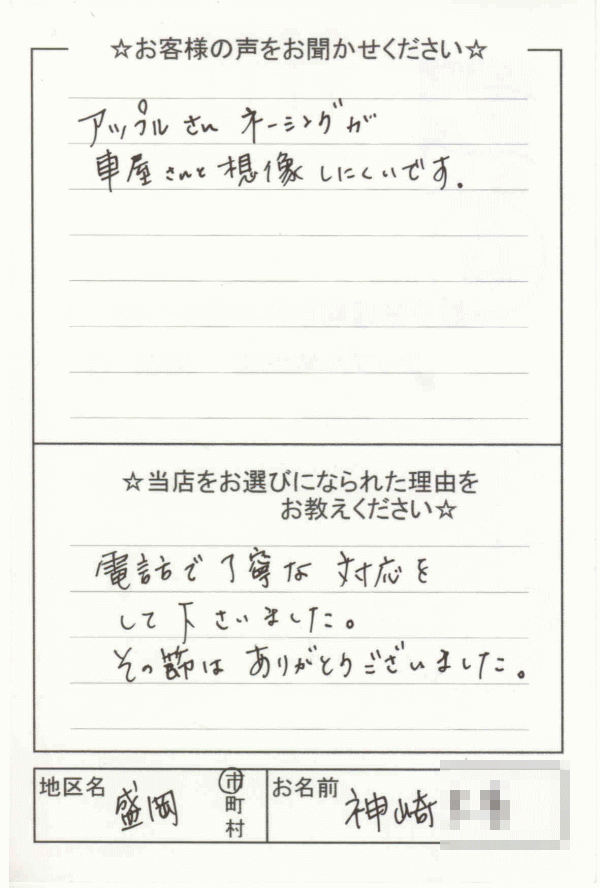 ☆お客様の声をお聞かせください☆
アップルさん ネーミングが
車屋さんと想像しにくいです。
☆当店をお選びになられた理由を
お教えください☆
電話で丁寧な対応を
して下さいました。
その節は ありがとうございました。
地区名 盛岡 市町村 お名前 神崎